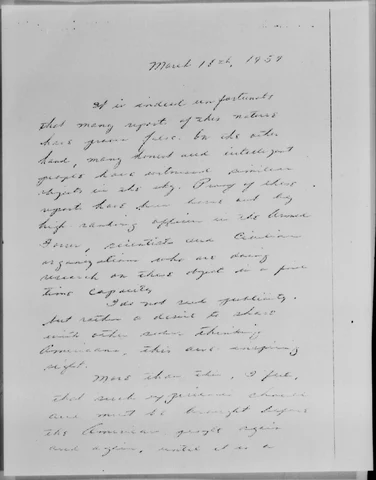 March 18th, 1959
It is indeed unfortunate
that many report of this nature
have proven false. On the other
hand, many honest and intelligent
people have witnessed similar
objects in the sky. Proof of these
report have been borne out by
high ranking officers in the Armed
Forces, scientists and Civilian
organizations who are doing
research on these object in a part
time capacity.
I do not seek publicity,
but rather a desire to share
with other sober thinking
Americans, this awe inspiring
sight.
More than this, I feel,
that such experiences should
and must be brought before
the American people again
and again, until it is a